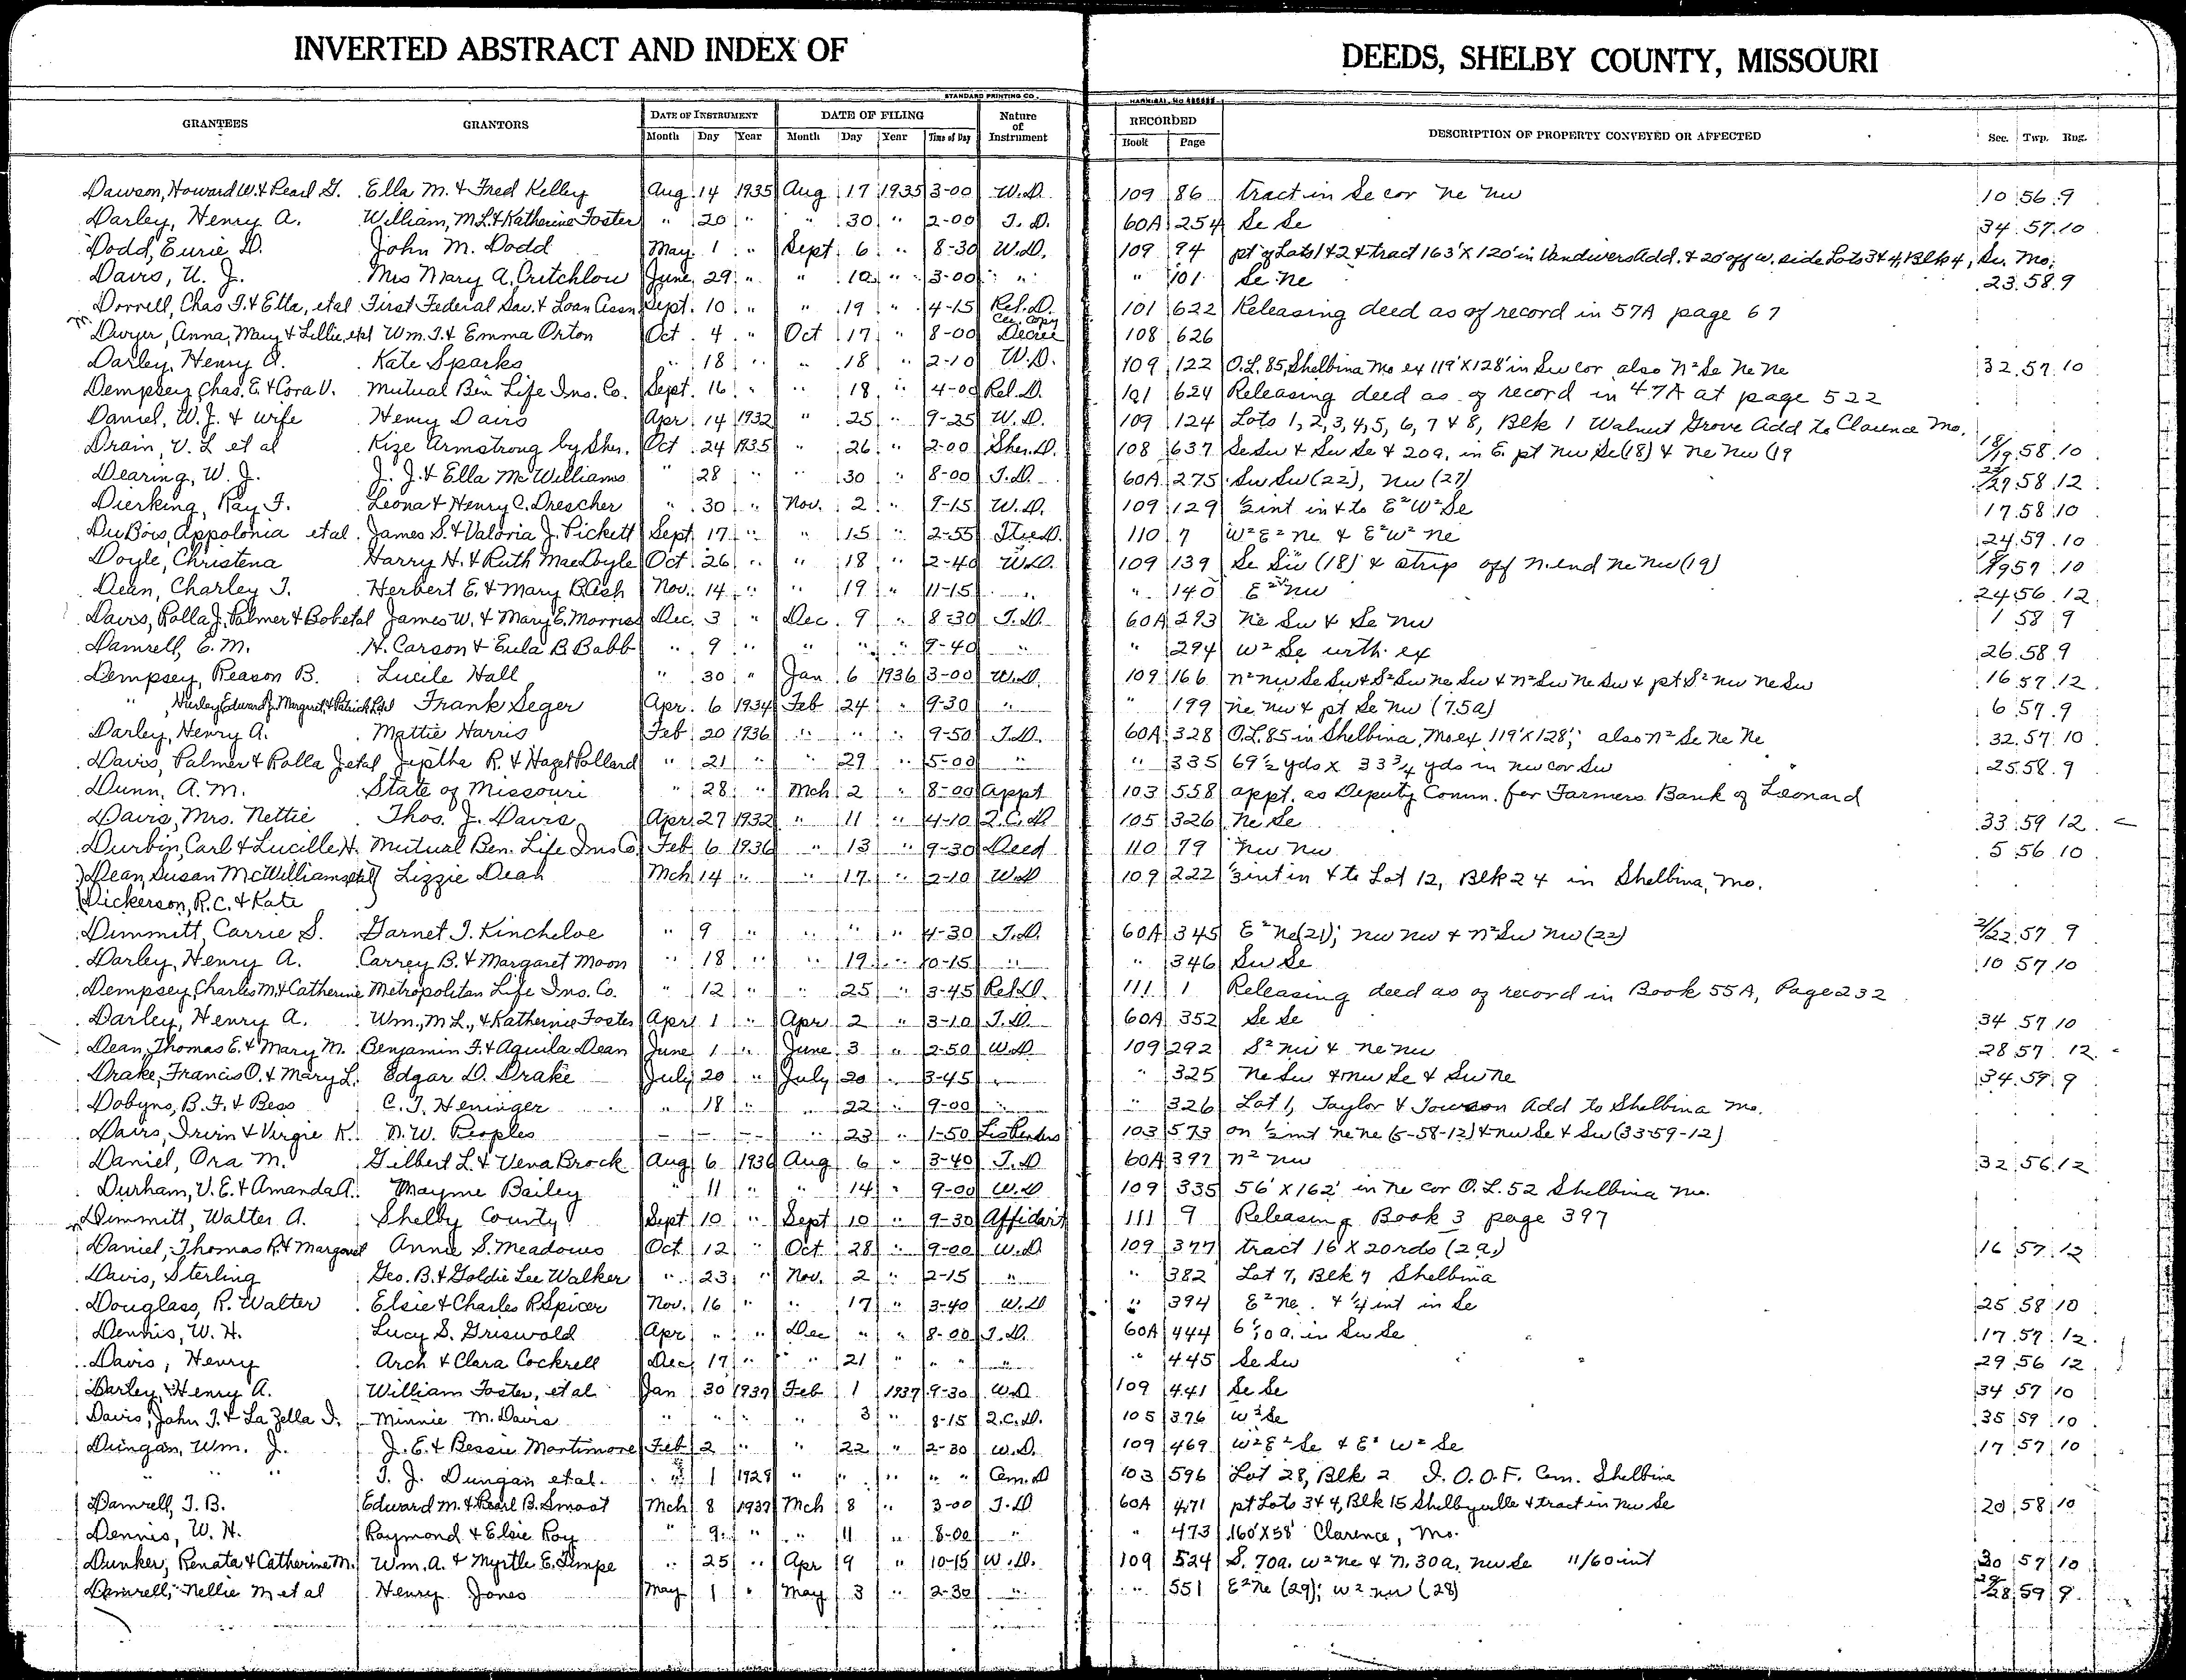 INVERTED ABSTRACT AND INDEX OF DEEDS, SHELBY COUNTY, MISSOURI
STANDARD PRINTING CO. HANNIBAL, MO
GRANTEES GRANTORS DATE OF INSTRUMENT DATE OF FILING Nature of Instrument RECORDED DESCRIPTION OF PROPERTY CONVEYED OR AFFECTED Sec. Twp. Rng.
Month Day Year Month Day Year Time of Day Book Page
Dawson, Howard W. & Pearl G. Ella M. & Fred Kelley Aug 14 1935 Aug 17 1935 3-00 W.D. 109 86 tract in Se cor Ne Nw 10 56 9
Darley, Henry A. William, M.L. & Katherine Foster " 20 " " 30 " 2-00 T.D. 60A 254 Se Se 34 57 10
Dodd, Eurie D. John M. Dodd May 1 " Sept 6 " 8-30 W.D. 109 94 pt of Lots 1 & 2 & tract 163' X 120' in Vandivers Add. & 20' off w. side Lots 3 & 4, Blk 4, Mo.
Davis, U. J. Mrs Mary A. Critchlow June 29 " " 10 " 3-00 " " 101 Se Ne 23 58 9
Dorrell, Chas T. & Ella, etal First Federal Sav. & Loan Assn Sept. 10 " " 19 " 4-15 Rel. D. 101 622 Releasing deed as of record in 57A page 67
Dwyer, Anna, Mary & Lillie, etal Wm. T. & Emma Orton Oct 4 " Oct 17 " 8-00 Cer. Copy Decree 108 626
Darley, Henry A. Kate Sparks " 18 " " 18 " 2-10 W.D. 109 122 O.L. 85, Shelbina Mo ex 119' X 128' in Sw cor also N² Se Ne Ne 32 57 10
Dempsey, Chas. E. & Cora V. Mutual Ben Life Ins. Co. Sept. 16 " " 18 " 4-00 Rel. D. 101 624 Releasing deed as of record in 47A at page 522
Daniel, W. J. & wife Henry Davis Apr 14 1932 " 25 " 9-25 W.D. 109 124 Lots 1, 2, 3, 4, 5, 6, 7 & 8, Blk 1 Walnut Grove Add to Clarence Mo.
Drain, V. L et al Kize Armstrong by Sher. Oct 24 1935 " 26 " 2-00 Sher. D. 108 637 Se Sw & Sw Se & 20a. in E. pt Nw Se (18) & Ne Nw (19 18/19 58 10
Dearing, W. J. J. J. & Ella McWilliams " 28 " 30 " 8-00 T.D. 60A 275 Sw Sw (22), Nw (27) 22/27 58 12
Dierking, Ray F. Leona & Henry C. Drescher " 30 " Nov. 2 " 9-15 W.D. 109 129 ½ int in & to E² W² Se 17 58 10
DuBois, Appolonia et al James S. & Valoria J. Pickett Sept 17 " " 15 " 2-55 110 7 W² E² Ne & E² W² Ne 24 59 10
Doyle, Christena Harry H. & Ruth Mae Doyle Oct 26 " " 18 " 2-40 W.D. 109 139 Se Sw (18) & strip off N. end Ne Nw (19) 18/19 57 10
Dean, Charley T. Herbert E. & Mary B. Ash Nov. 14 " " 19 " 11-15 " " 140 E² Nw 24 56 12
Davis, Rolla J. Palmer & Bob etal James W. & Mary E. Morriss Dec. 3 " Dec. 9 " 8-30 T.D. 60A 293 Ne Sw & Se Nw 1 58 9
Damrell, E. M. H. Carson & Eula B. Babb " 9 " " " " 9-40 " " 294 W² Se with ex 26 58 9
Dempsey, Reason B. Lucile Hall " 30 " Jan 6 1936 3-00 W.D. 109 166 N² Nw Se Sw & S² Sw Ne Sw & N² Sw Ne Sw & pt S² Nw Ne Sw 16 57 12
" Frank Seger Apr. 6 1934 Feb 24 " 9-30 " " 199 Ne Nw & pt Se Nw (7.5a) 6 57 9
Darley, Henry A. Mattie Harris Feb 20 1936 " " " 9-50 T.D. 60A 328 O.L. 85 in Shelbina, Mo ex 119' X 128', also N² Se Ne Ne 32 57 10
Davis, Palmer & Rolla J etal Jeptha R. & Hazel Pollard " 21 " 29 5-00 " " 335 69½ yds x 33¾ yds in Nw cor Sw 25 58 9
Dunn, A. M. State of Missouri " 28 " Mch 2 " 8-00 Appt 103 558 Appt. as Deputy Comm. for Farmers Bank of Leonard
Davis, Mrs. Nettie Thos. J. Davis Apr 27 1932 " 11 " 4-10 Q.C.D. 105 326 Ne Se 33 59 12
Durbin, Carl & Lucille H. Mutual Ben. Life Ins Co. Feb 6 1936 " 13 " 9-30 Deed 110 79 Nw Nw 5 56 10
Dean, Susan McWilliams etal Lizzie Dean Mch 14 " " 17 " 2-10 W.D. 109 222 ⅓ int in & to Lot 12, Blk 24 in Shelbina, Mo.
Dickerson, R.C. & Kate
Dimmitt, Carrie S. Garnet T. Kincheloe " 9 " " " 4-30 T.D. 60A 345 E² Ne (21); Nw Nw & N² Sw Nw (22) 21/22 57 9
Darley, Henry A. Carrey B. & Margaret Moon " 18 " " 19 " 10-15 " " 346 Sw Se 10 57 10
Dempsey, Charles M. & Catherine Metropolitan Life Ins. Co. " 12 " " 25 " 3-45 Rel. D. 111 1 Releasing deed as of record in Book 55A, Page 232
Darley, Henry A. Wm., M L., & Katherine Foster Apr 1 " Apr 2 " 3-10 T.D. 60A 352 Se Se 34 57 10
Dean, Thomas E. & Mary M. Benjamin F. & Aquila Dean June 1 " June 3 " 2-50 W.D. 109 292 S² Nw & Ne Nw 28 57 12
Drake, Francis O. & Mary L. Edgar D. Drake July 20 " July 20 " 3-45 " " 325 Ne Sw & Nw Se & Sw Ne 34 59 9
Dobyns, B. F. & Bess C. T. Heninger " 18 " " 22 " 9-00 " " 326 Lot 1, Taylor & Towson Add to Shelbina Mo.
Davis, Irvin & Virgie K. N. W. Peoples — — — " 23 " 1-50 Lis Pendens 103 573 on ½ int Ne Ne (5-58-12) & Nw Se & Sw (33-59-12)
Daniel, Ora M. Gilbert L. & Vena Brock Aug 6 1936 Aug 6 " 3-40 T.D 60A 397 N² Nw 32 56 12
Durham, V. E. & Amanda A. Mayme Bailey " 11 " " 14 " 9-00 W.D 109 335 56' X 162' in Ne cor O.L. 52 Shelbina Mo.
Dimmitt, Walter A. Shelby County Sept 10 " Sept 10 " 9-30 Affidavit 111 9 Releasing Book 3 page 397
Daniel, Thomas R. & Margaret Annie S. Meadows Oct 12 " Oct 28 " 9-00 W.D 109 377 tract 16 X 20 rds (2a.) 16 57 12
Davis, Sterling Geo. B. & Goldie Lee Walker " 23 " Nov. 2 " 2-15 " " 382 Lot 7, Blk 7 Shelbina
Douglass, R. Walter Elsie & Charles P. Spicer Nov. 16 " " 17 " 3-40 W.D " 394 E² Ne & ¼ int in Se 25 58 10
Dennis, W. H. Lucy S. Griswold Apr " " Dec " " 8-00 T.D. 60A 444 in Sw Se 17 57 12
Davis, Henry Arch & Clara Cockrell Dec 17 " " 21 " " " " " 445 Se Sw 29 56 12
Darley, Henry A. William Foster, et al Jan 30 1937 Feb 1 1937 9-30 W.D 109 441 Se Se 34 57 10
Davis, John T. & La Zella D. Minnie M. Davis " " " " 3 " 8-15 Q.C.D. 105 376 W² Se 35 59 10
Dungan, Wm. J. J. E. & Bessie Mortimore Feb 2 " " 22 " 2-30 W.D. 109 469 W² E² Se & E² W² Se 17 57 10
" " " T. J. Dungan et al. 1 1929 " " " " " Cem. D 103 596 Lot 28, Blk 2 I.O.O.F. Cem. Shelbina
Damrell, T. B. Edward M. & Pearl B. Smoot Mch 8 1937 Mch 8 " 3-00 T.D 60A 471 pt Lots 3 & 4, Blk 15 Shelbyville & tract in Nw Se 20 58 10
Dennis, W. H. Raymond & Elsie Roy " 9 " " 11 " 8-00 " " 473 160' X 58' Clarence, Mo.
Dunker, Renata & Catherine M. Wm. A. & Myrtle E. Timpe " 25 " Apr 9 " 10-15 W.D. 109 524 S. 70a. W² Ne & N. 30a, Nw Se 11/60 int 30 57 10
Damrell, Nellie M et al Henry Jones May 1 " May 3 " 2-30 " " 551 E² Ne (29); W² Nw (28) 29/28 59 9